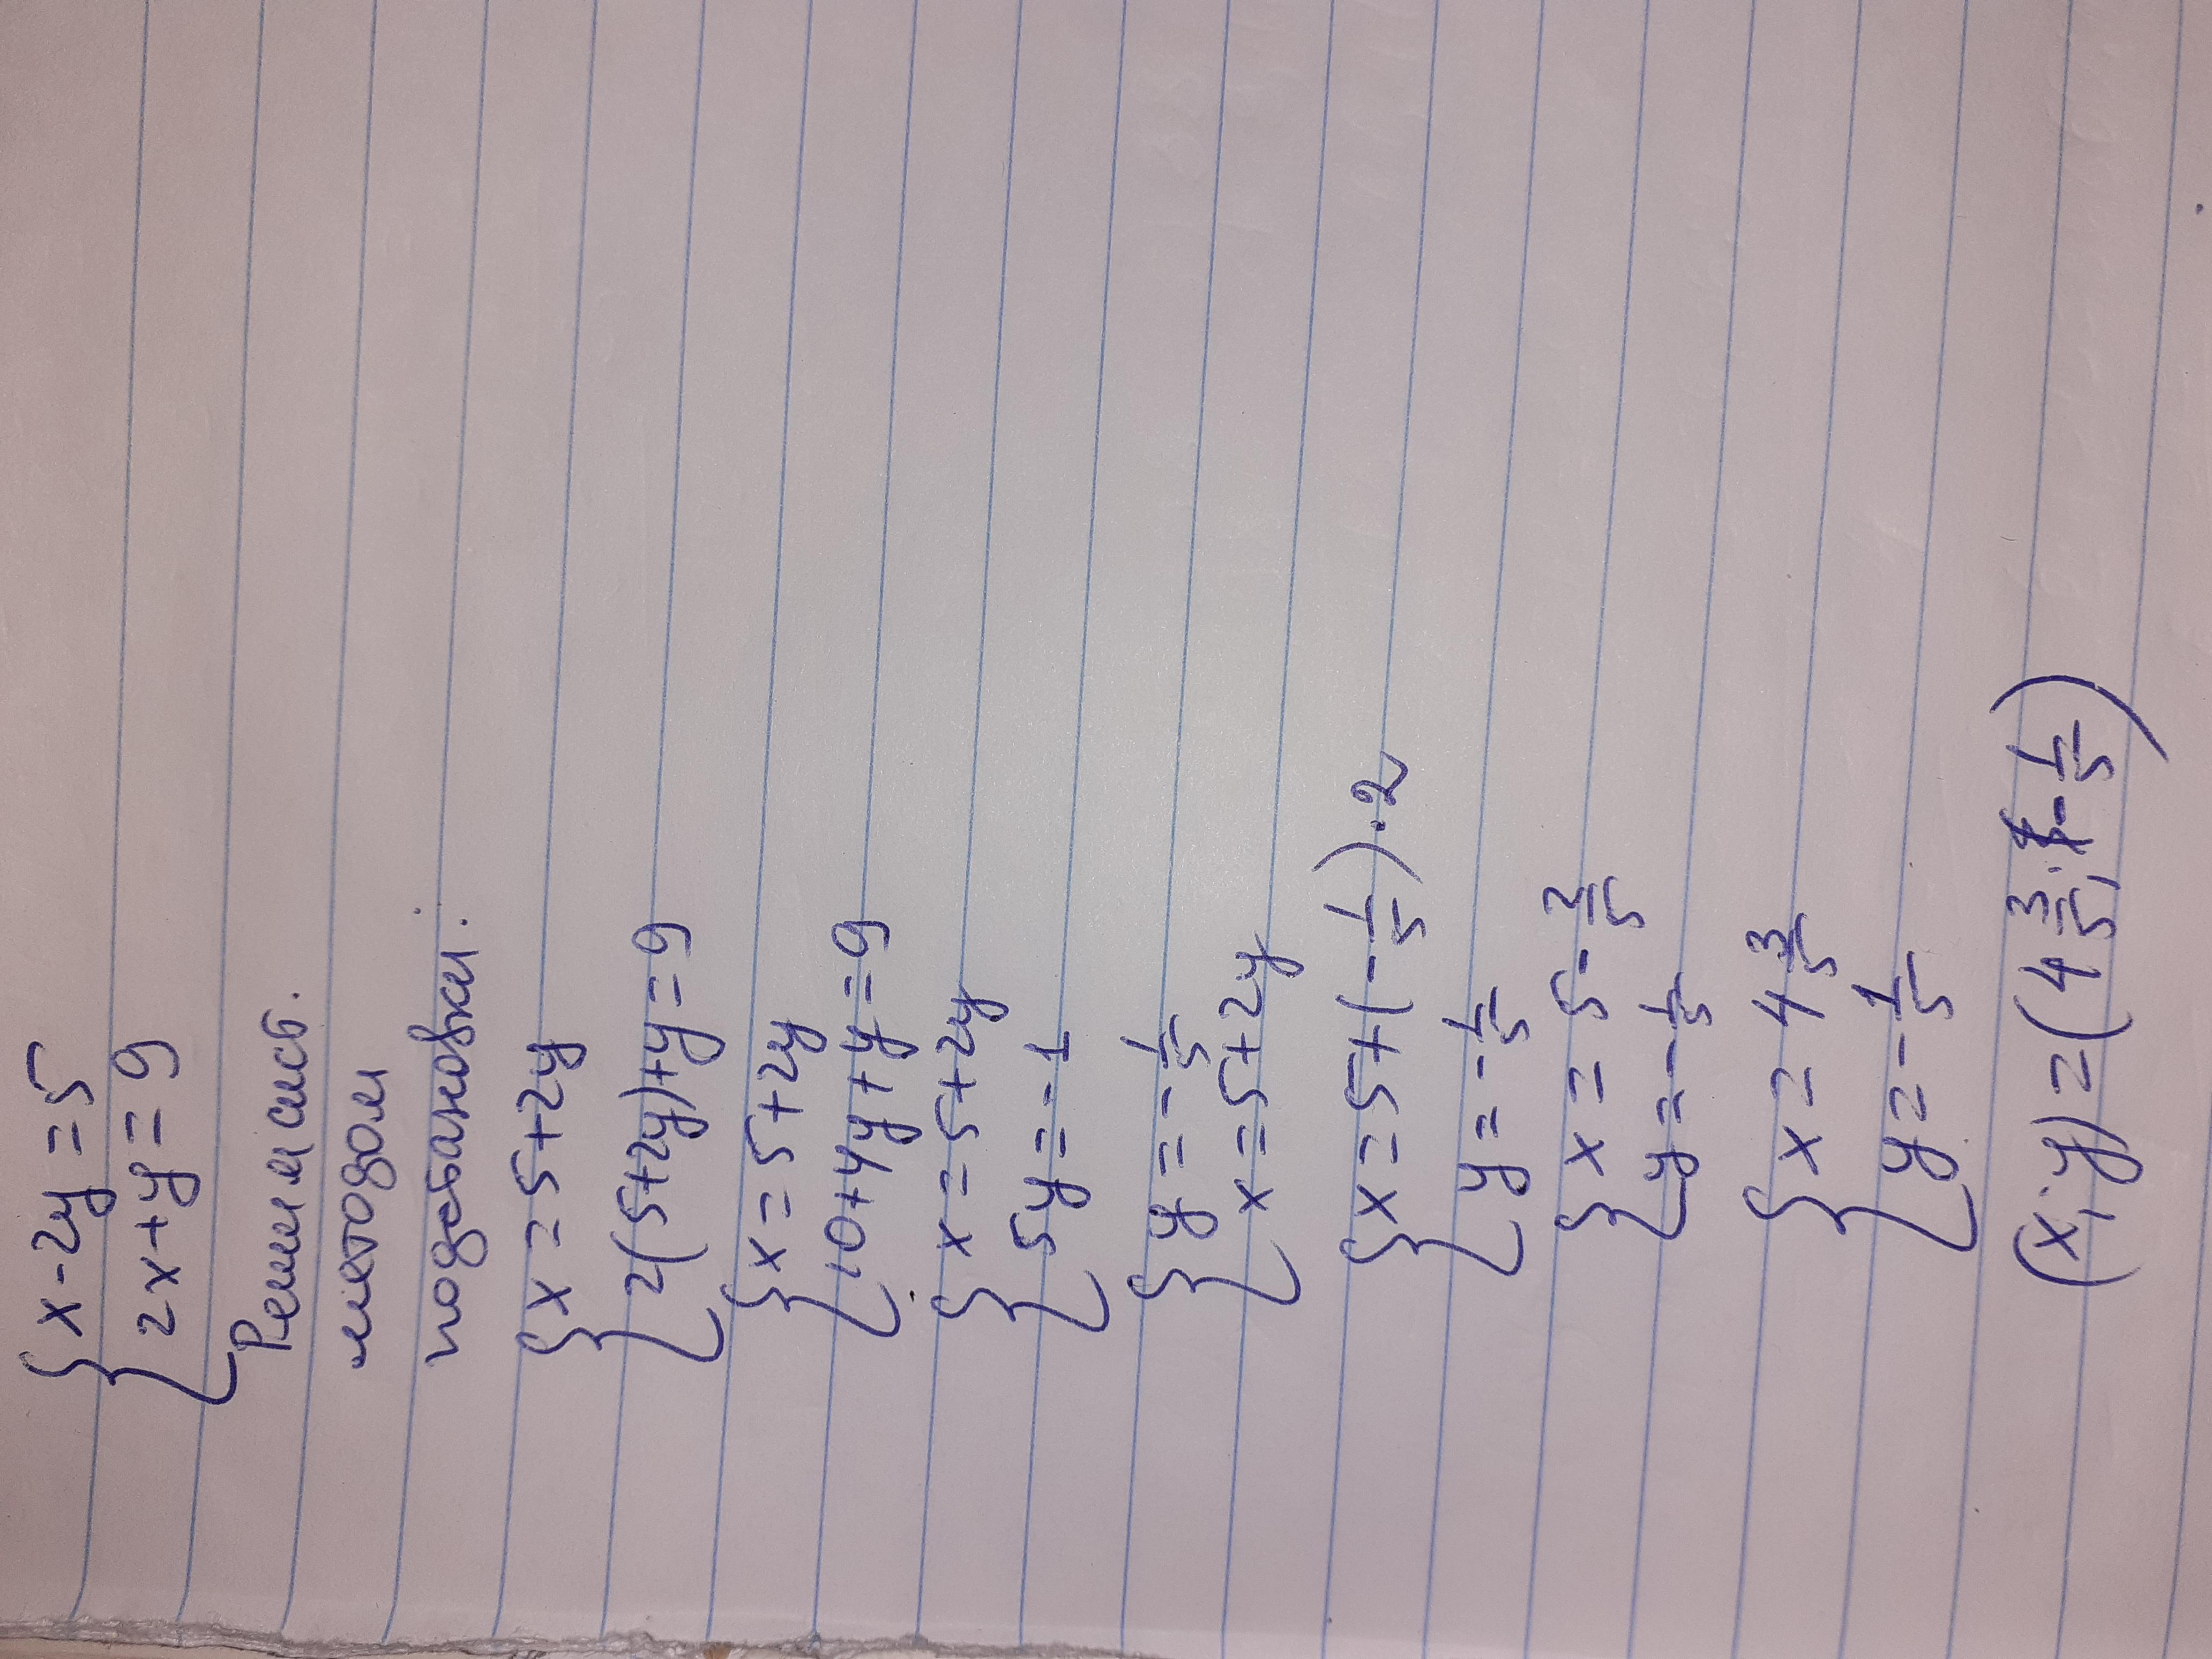 { x - 2y = 5
2x + y = 9
Решим сист.
методом
подстановки:
{ x = 5 + 2y
2(5+2y)+y = 9
{ x = 5 + 2y
10+4y+y = 9
{ x = 5 + 2y
5y = -1
{ y = -1/5
x = 5 + 2y
{ x = 5 + (-1/5) · 2
y = -1/5
{ x = 5 - 2/5
y = -1/5
{ x = 4 3/5
y = -1/5
(x; y) = (4 3/5; -1/5)